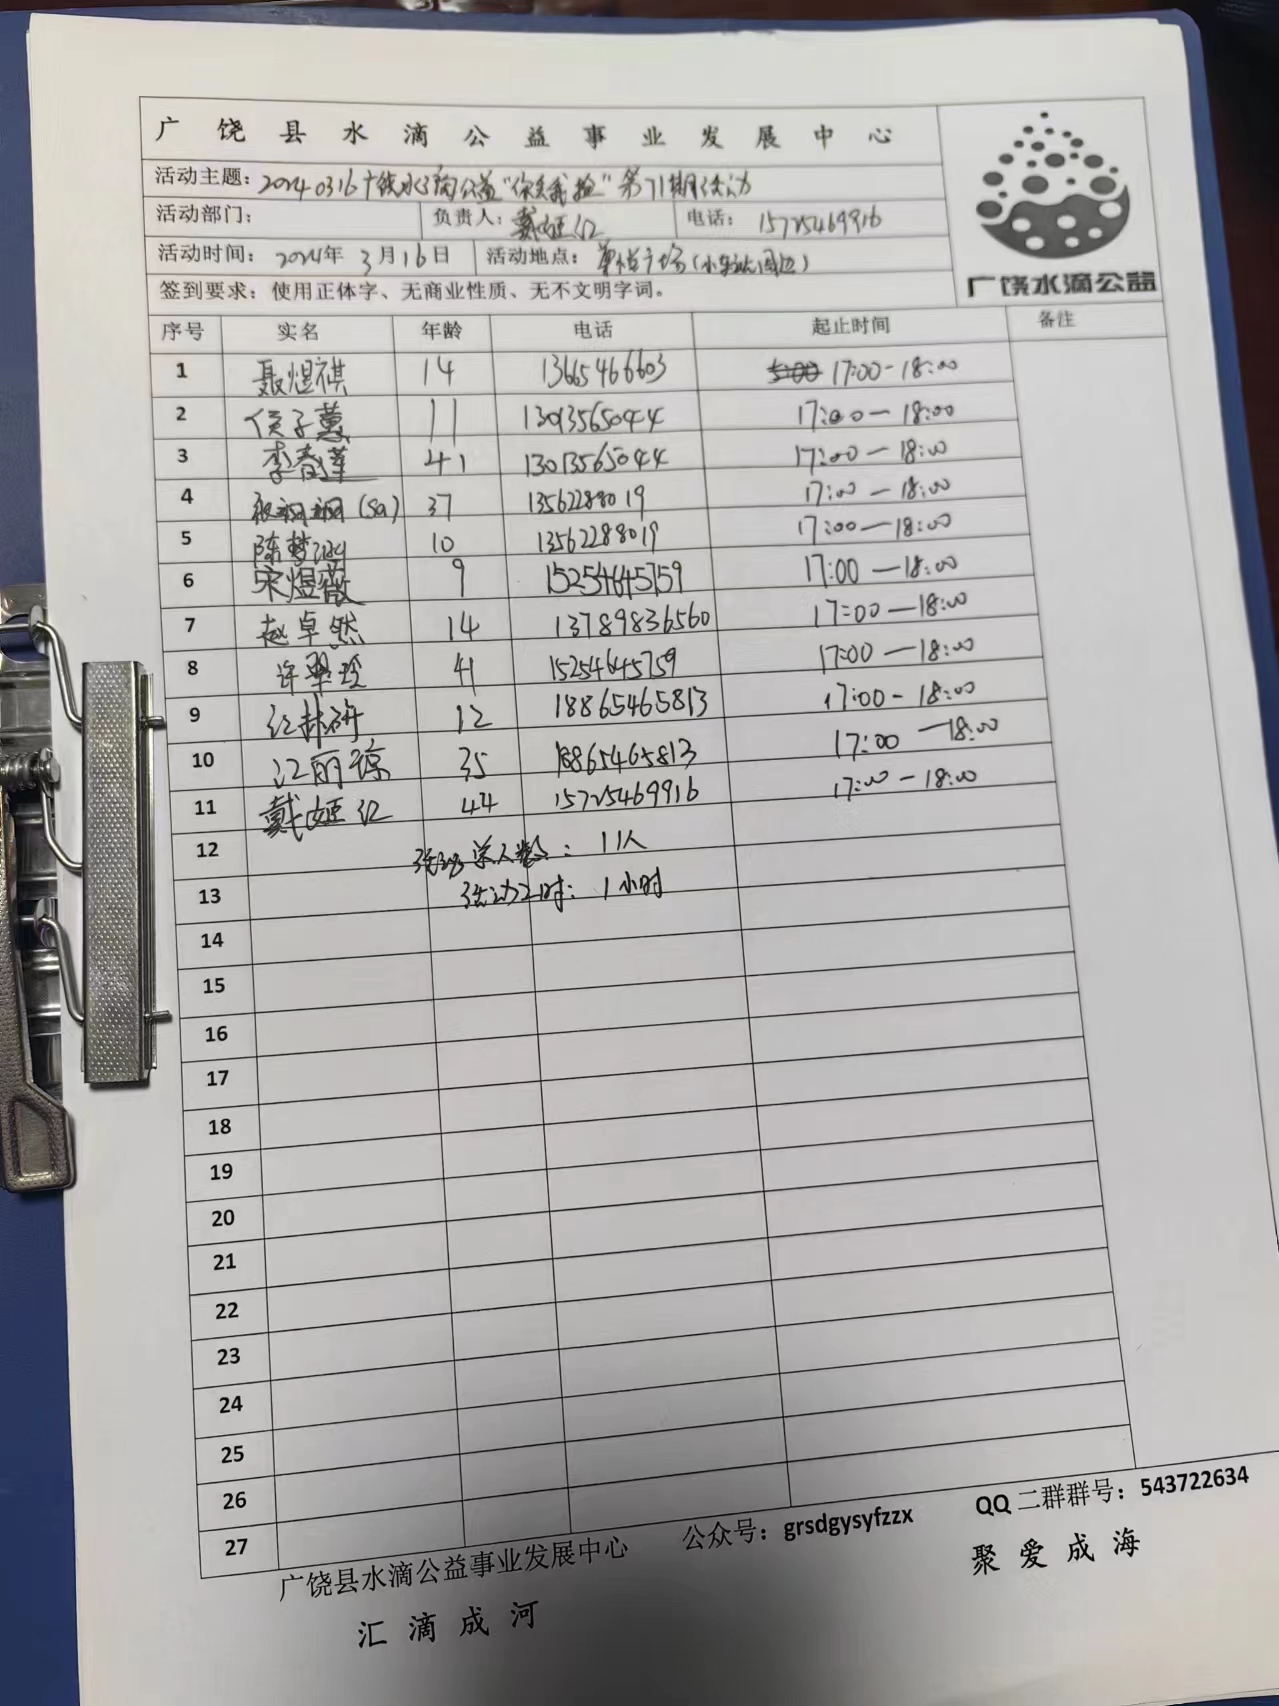 广饶县水滴公益事业发展中心
活动主题：20240316广饶水滴公益“你丢我捡”第71期活动
活动部门： 负责人：戴姬红 电话：15725469916
活动时间：2024年3月16日 活动地点：广场(小车站周边)
广饶水滴公益
签到要求：使用正体字、无商业性质、无不文明字词。
序号 实名 年龄 电话 起止时间 备注
1 聂煜祺 14 13665466603 17:00-18:00
2 侯子薰 11 13013565044 17:00—18:00
3 李春莲 41 13013565044 17:00—18:00
4 (sa) 37 13562288019 17:00—18:00
5 陈梦 10 13562288019 17:00—18:00
6 宋煜薇 9 15254645759 17:00—18:00
7 赵卓然 14 13789836560 17:00—18:00
8 许翠玲 41 15254645759 17:00—18:00
9 12 18865465813 17:00-18:00
10 江丽琼 35 18865465813 17:00—18:00
11 戴姬红 44 15725469916 17:00-18:00
12 活动总人数：11人
13 活动工时：1小时
14
15
16
17
18
19
20
21
22
23
24
25
26
27
广饶县水滴公益事业发展中心 公众号：grsdgysyfzzx QQ二群群号：543722634
汇滴成河 聚爱成海